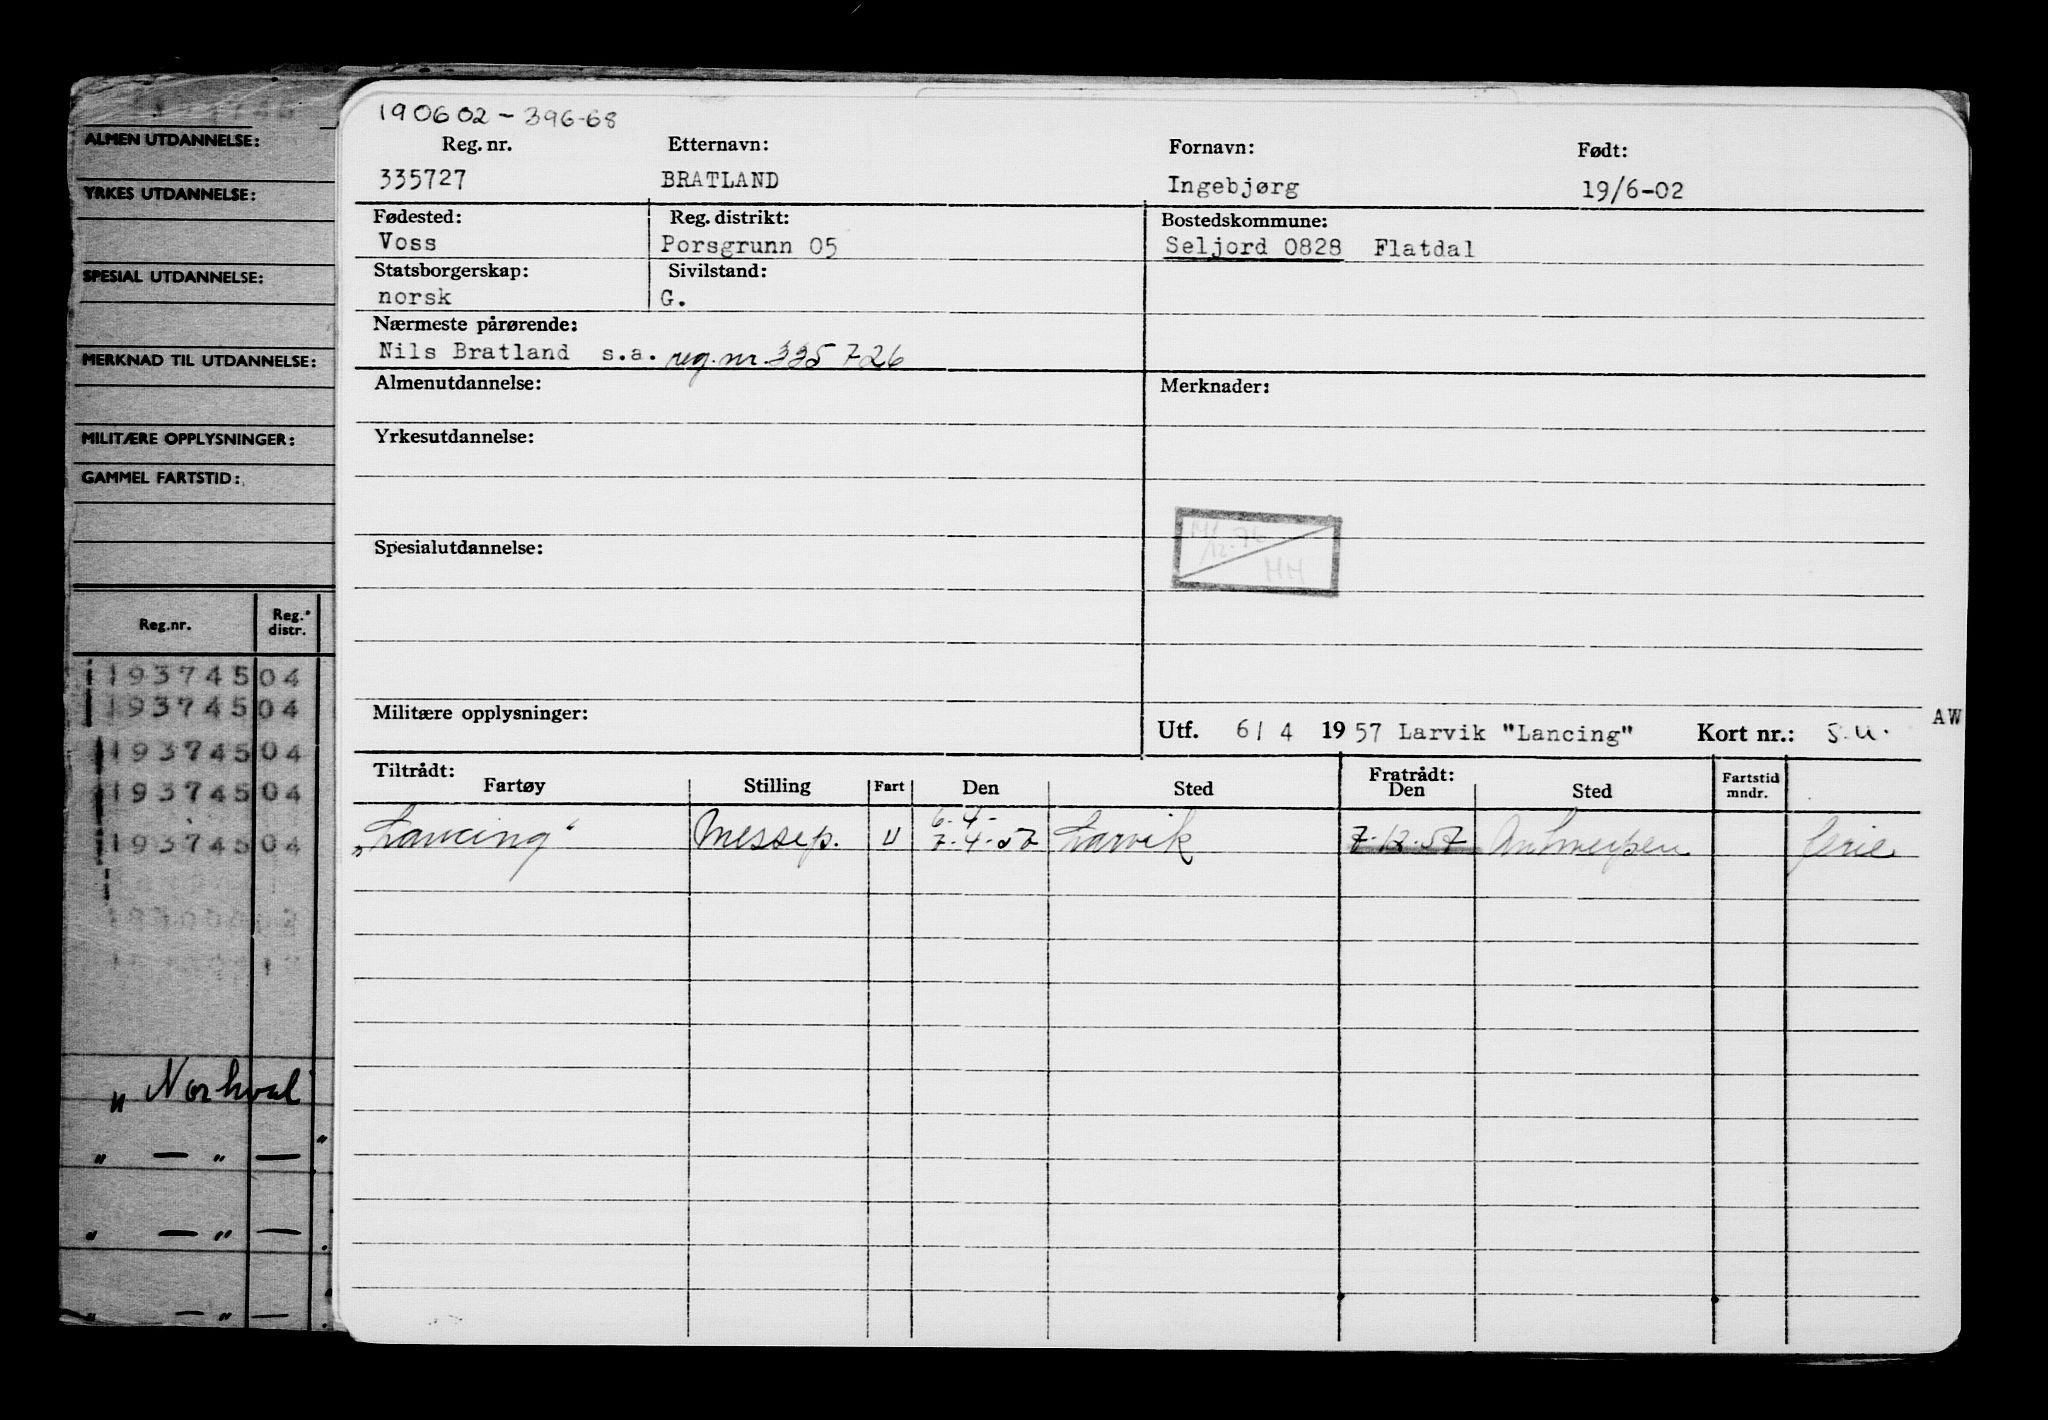 190602-396-68
Reg. nr. Etternavn: Fornavn: Født:
335727 BRATLAND Ingebjørg 19/6-02
Fødested: Reg. distrikt: Bostedskommune:
Voss Porsgrunn 05 Seljord 0828 Flatdal
Statsborgerskap: Sivilstand:
norsk G.
Nærmeste pårørende:
Nils Bratland s.a. reg.nr. 335726
Almenutdannelse: Merknader:
Yrkesutdannelse:
12.76
HH
Spesialutdannelse:
Militære opplysninger:
Utf. 6/4 1957 Larvik "Lancing" Kort nr.: S.U. AW
Tiltrådt: Fratrådt:
Fartøy Stilling Fart Den Sted Den Sted Fartstid mndr.
6-4-
„Lancing" Messep. U 7-4-57 Larvik 7-12-57 Antwerpen ferie
ALMEN UTDANNELSE:
YRKES UTDANNELSE:
SPESIAL UTDANNELSE:
MERKNAD TIL UTDANNELSE:
MILITÆRE OPPLYSNINGER:
GAMMEL FARTSTID:
Reg.nr. Reg. distr.
193745 04
193745 04
193745 04
193745 04
193745 04
„Norhval"
„ — „ —
„ — „ —
„ — „ —